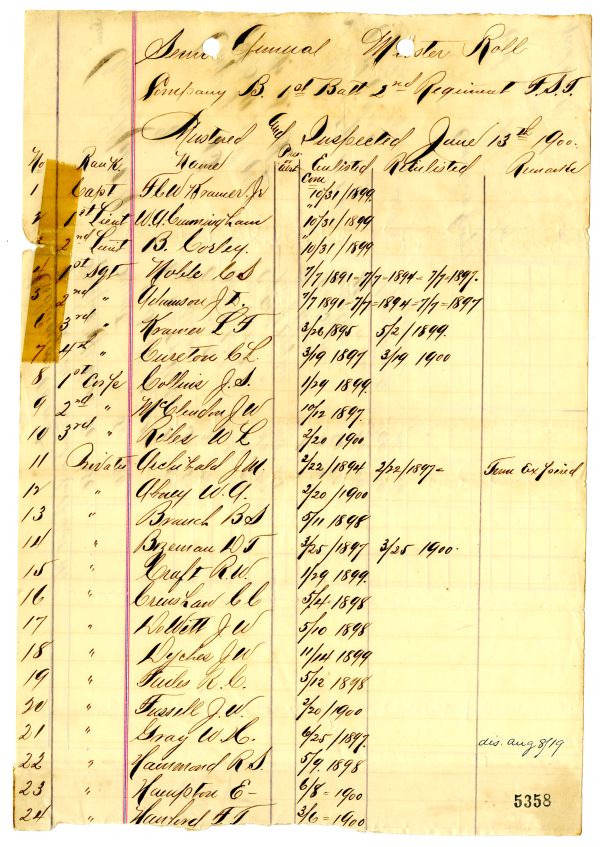 Semi Annual Muster Roll
Company B. 1st Batt 2nd Regiment F.S.T.
Mustered And Inspected June 13th 1900.
No Rank Name Enlisted Reinlisted Remarks
Com
1 Capt F C W Kramer Jr 10/31/1899
2 1st Lieut W. G. Cunningham " 10/31/1899
3 2nd Lieut B. Cosley. 10/31/1899
4 1st Sgt Noble C S 7/7 1891-7/7-1894-7/7-1897-
5 2nd " Adamson J. 7/7 1891-7/7-1894-7/7-1897
6 3rd " Kramer L F 3/26/1895 5/2/1899.
7 4th " Cureton C L 3/19 1897 3/19 1900
8 1st Corp Collins J. S. 1/29 1899.
9 2nd " McClendon J W 10/12 1897.
10 3rd " Riles W L 2/20 1900
11 Privates Archibald J. M. 2/22/1894 2/22/1897- Term Expired
12 " Abney W. A. 2/20/1900
13 " Branch B S 5/11 1898
14 " Bozeman D T 3/25/1897 3/25 1900.
15 " Craft R. W. 1/29 1899.
16 " Crenshaw C C 5/4-1898
17 " J W 5/10 1898
18 " Dyches J W 11/14 1899
19 " R. C. 5/12 1898
20 " Fussell J. W. 2/20/1900
21 " Gray W. H. 6/25/1897. dis. aug 8/19
22 " Hammond R S. 5/9. 1898
23 " Hampton E- 6/8-1900
24 " Hanford F T 3/6-1900
5358